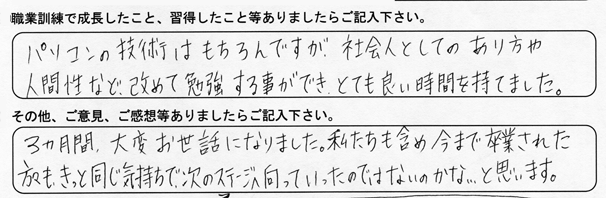 職業訓練で成長したこと、習得したこと等ありましたらご記入下さい。
パソコンの技術はもちろんですが、社会人としてのあり方や
人間性など、改めて勉強する事ができ、とても良い時間を持てました。
その他、ご意見、ご感想等ありましたらご記入下さい。
3ヵ月間、大変お世話になりました。私たちも含め今まで卒業された
方も、きっと同じ気持ちで、次のステージへ向っていったのではないのかな…と思います。